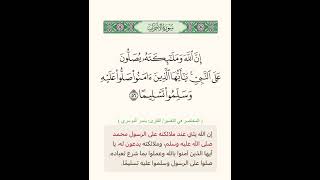 سورة الأحزاب
إِنَّ ٱللَّهَ وَمَلَٰٓئِكَتَهُۥ يُصَلُّونَ
عَلَى ٱلنَّبِيِّ يَٰٓأَيُّهَا ٱلَّذِينَ ءَامَنُوا۟ صَلُّوا۟ عَلَيْهِ
وَسَلِّمُوا۟ تَسْلِيمًا ٥٦
( المختصر في التفسير/ القارئ: ياسر الدوسري )
إن الله يثني عند ملائكته على الرسول محمد
صلى الله عليه وسلم، وملائكته يدعون له، يا
أيها الذين آمنوا بالله وعملوا بما شرع لعباده،
صلوا على الرسول وسلموا عليه تسليمًا.